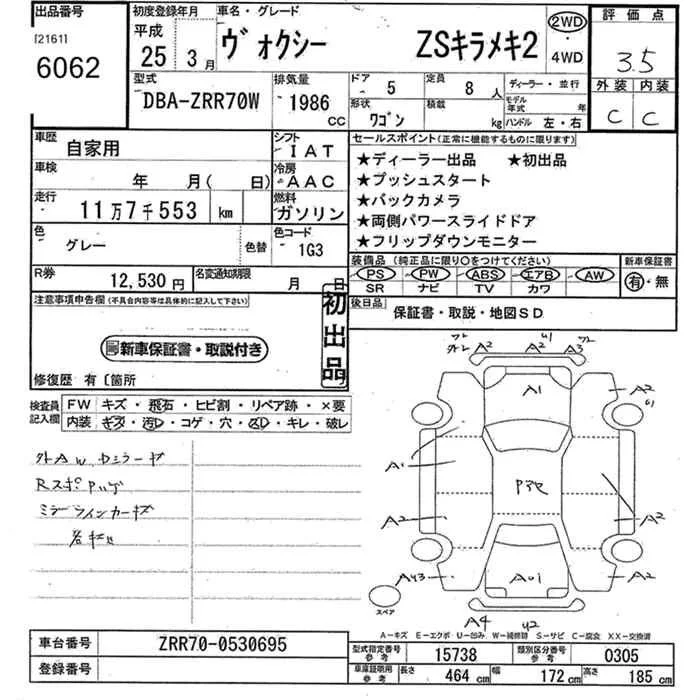 出品番号
[2161]
6062
初度登録年月
平成
25 3月
車名・グレード
ヴォクシー ZSキラメキ2
2WD
・
4WD
評価点
3.5
外装 内装
C C
型式
DBA-ZRR70W
排気量
1986 CC
ドア 5
定員 8人
ディーラー・並行
形状 ワゴン
積載 kg
モデル年式 年
ハンドル 左・右
車歴
自家用
シフト
IAT
車検
年 月( 日)
冷房
AAC
走行
11万7千553 km
燃料
ガソリン
色
グレー
色替
色コード
1G3
R券
12,530円
名変通知期限
月 日
セールスポイント(正常に機能するものに限ります)
★ディーラー出品 ★初出品
★プッシュスタート
★バックカメラ
★両側パワースライドドア
★フリップダウンモニター
装備品(純正品に限り○をつけてください)
PS PW ABS エアB AW
SR ナビ TV カワ
新車保証書
有・無
後日品
保証書・取説・地図SD
注意事項申告欄(不具合内容等は具体的に記入して下さい)
初出品
新車保証書・取説付き
修復歴 有〔箇所
検査員記入欄
FW キズ・飛石・ヒビ割・リペア跡・×要
内装 キズ・汚レ・コゲ・穴・スレ・キレ・破レ
外AW
A2 A2 U1 A3
A1
A2
A1
A2
A2
A2
A4 U2
スペア
A-キズ E-エクボ U-凹み W-補修跡 S-サビ C-腐食 XX-交換済
車台番号
ZRR70-0530695
登録番号
型式指定番号 参考
15738
類別区分番号 参考
0305
車庫証明用 参考
長さ 464 cm
幅 172 cm
高さ 185 cm